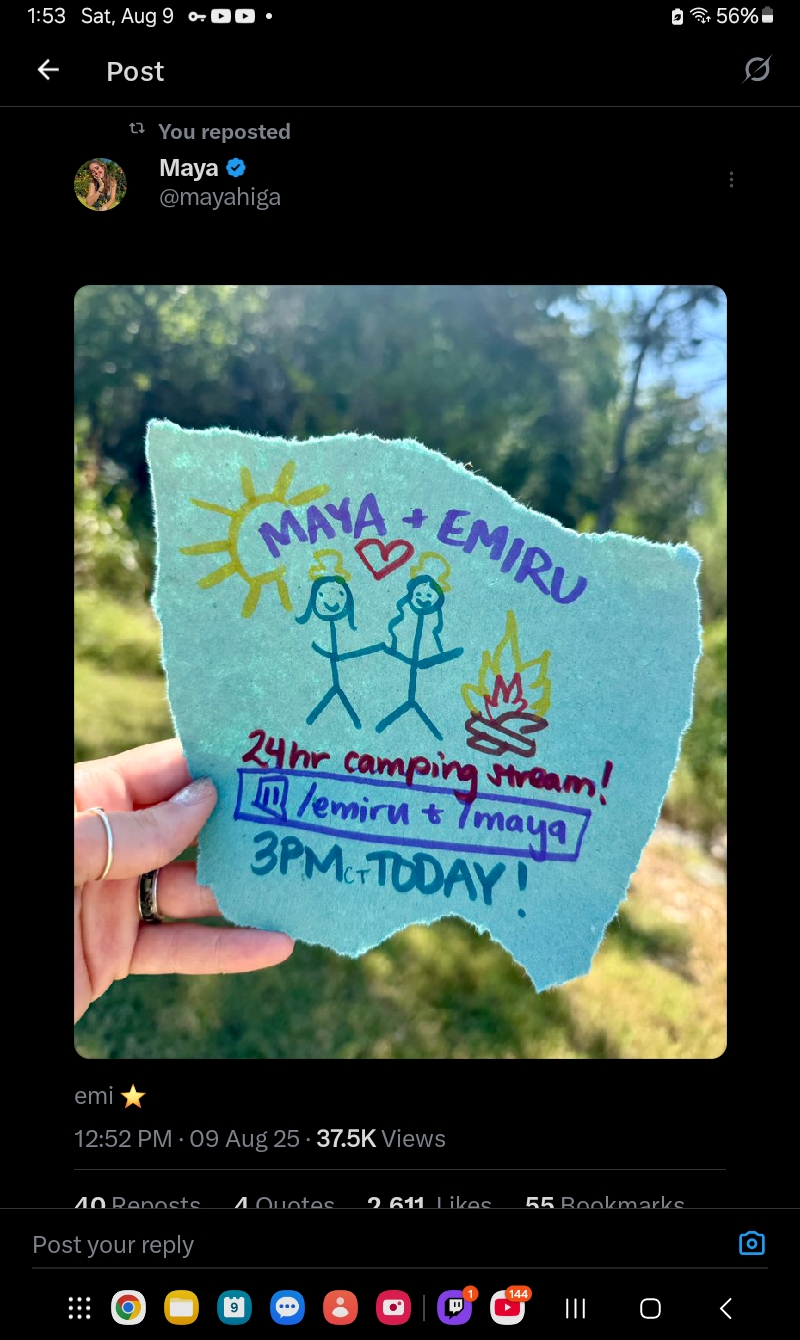 1:53 Sat, Aug 9 56%
Post
You reposted
Maya
@mayahiga
MAYA + EMIRU
24hr camping stream!
/emiru + /maya
3PM CT TODAY!
emi ⭐
12:52 PM · 09 Aug 25 · 37.5K Views
40 Reposts 4 Quotes 2,611 Likes 55 Bookmarks
Post your reply
9
1
144